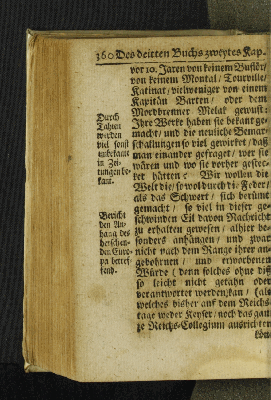 360 Des dritten Buchs zweytes Kap.
vor 10. Jaren von keinem Bufflér/
von keinem Montal / Tourville/
Katinat/ vielweniger von einem
Kapitän Barten/ oder dem
Mordbrenner Melak gewust:
Ihre Werke haben sie bekant ge-
macht/ und die neuliche Bemar-
schallungen so viel gewirket/ daß
man einander gefraget/ wer sie
wären und wo sie vorher gestec-
ket hätten? Wir wollen die
Welt die/ so wol durch die Feder/
als das Schwert / sich berümt
gemacht / so viel in dieser ge-
schwinden Eil davon Nachricht
zu erhalten gewesen / alhier be-
sonders anhängen/ und zwar
nicht nach dem Range ihrer an-
gebohrnen / und erworbenen
Würde ( denn solches ohne diß
so leicht nicht getahn oder
verantwortet werden kan / als
welches bisher auf dem Reichs-
tage weder Keyser/ noch das gan-
ze Reichs-Collegium ausrichten
Durch
Tahten
werden
viel sonst
unbekante
in Zei-
tungen be-
kant.
Bericht
den An-
hang des
herschen-
den Euro-
pa betref-
fend.